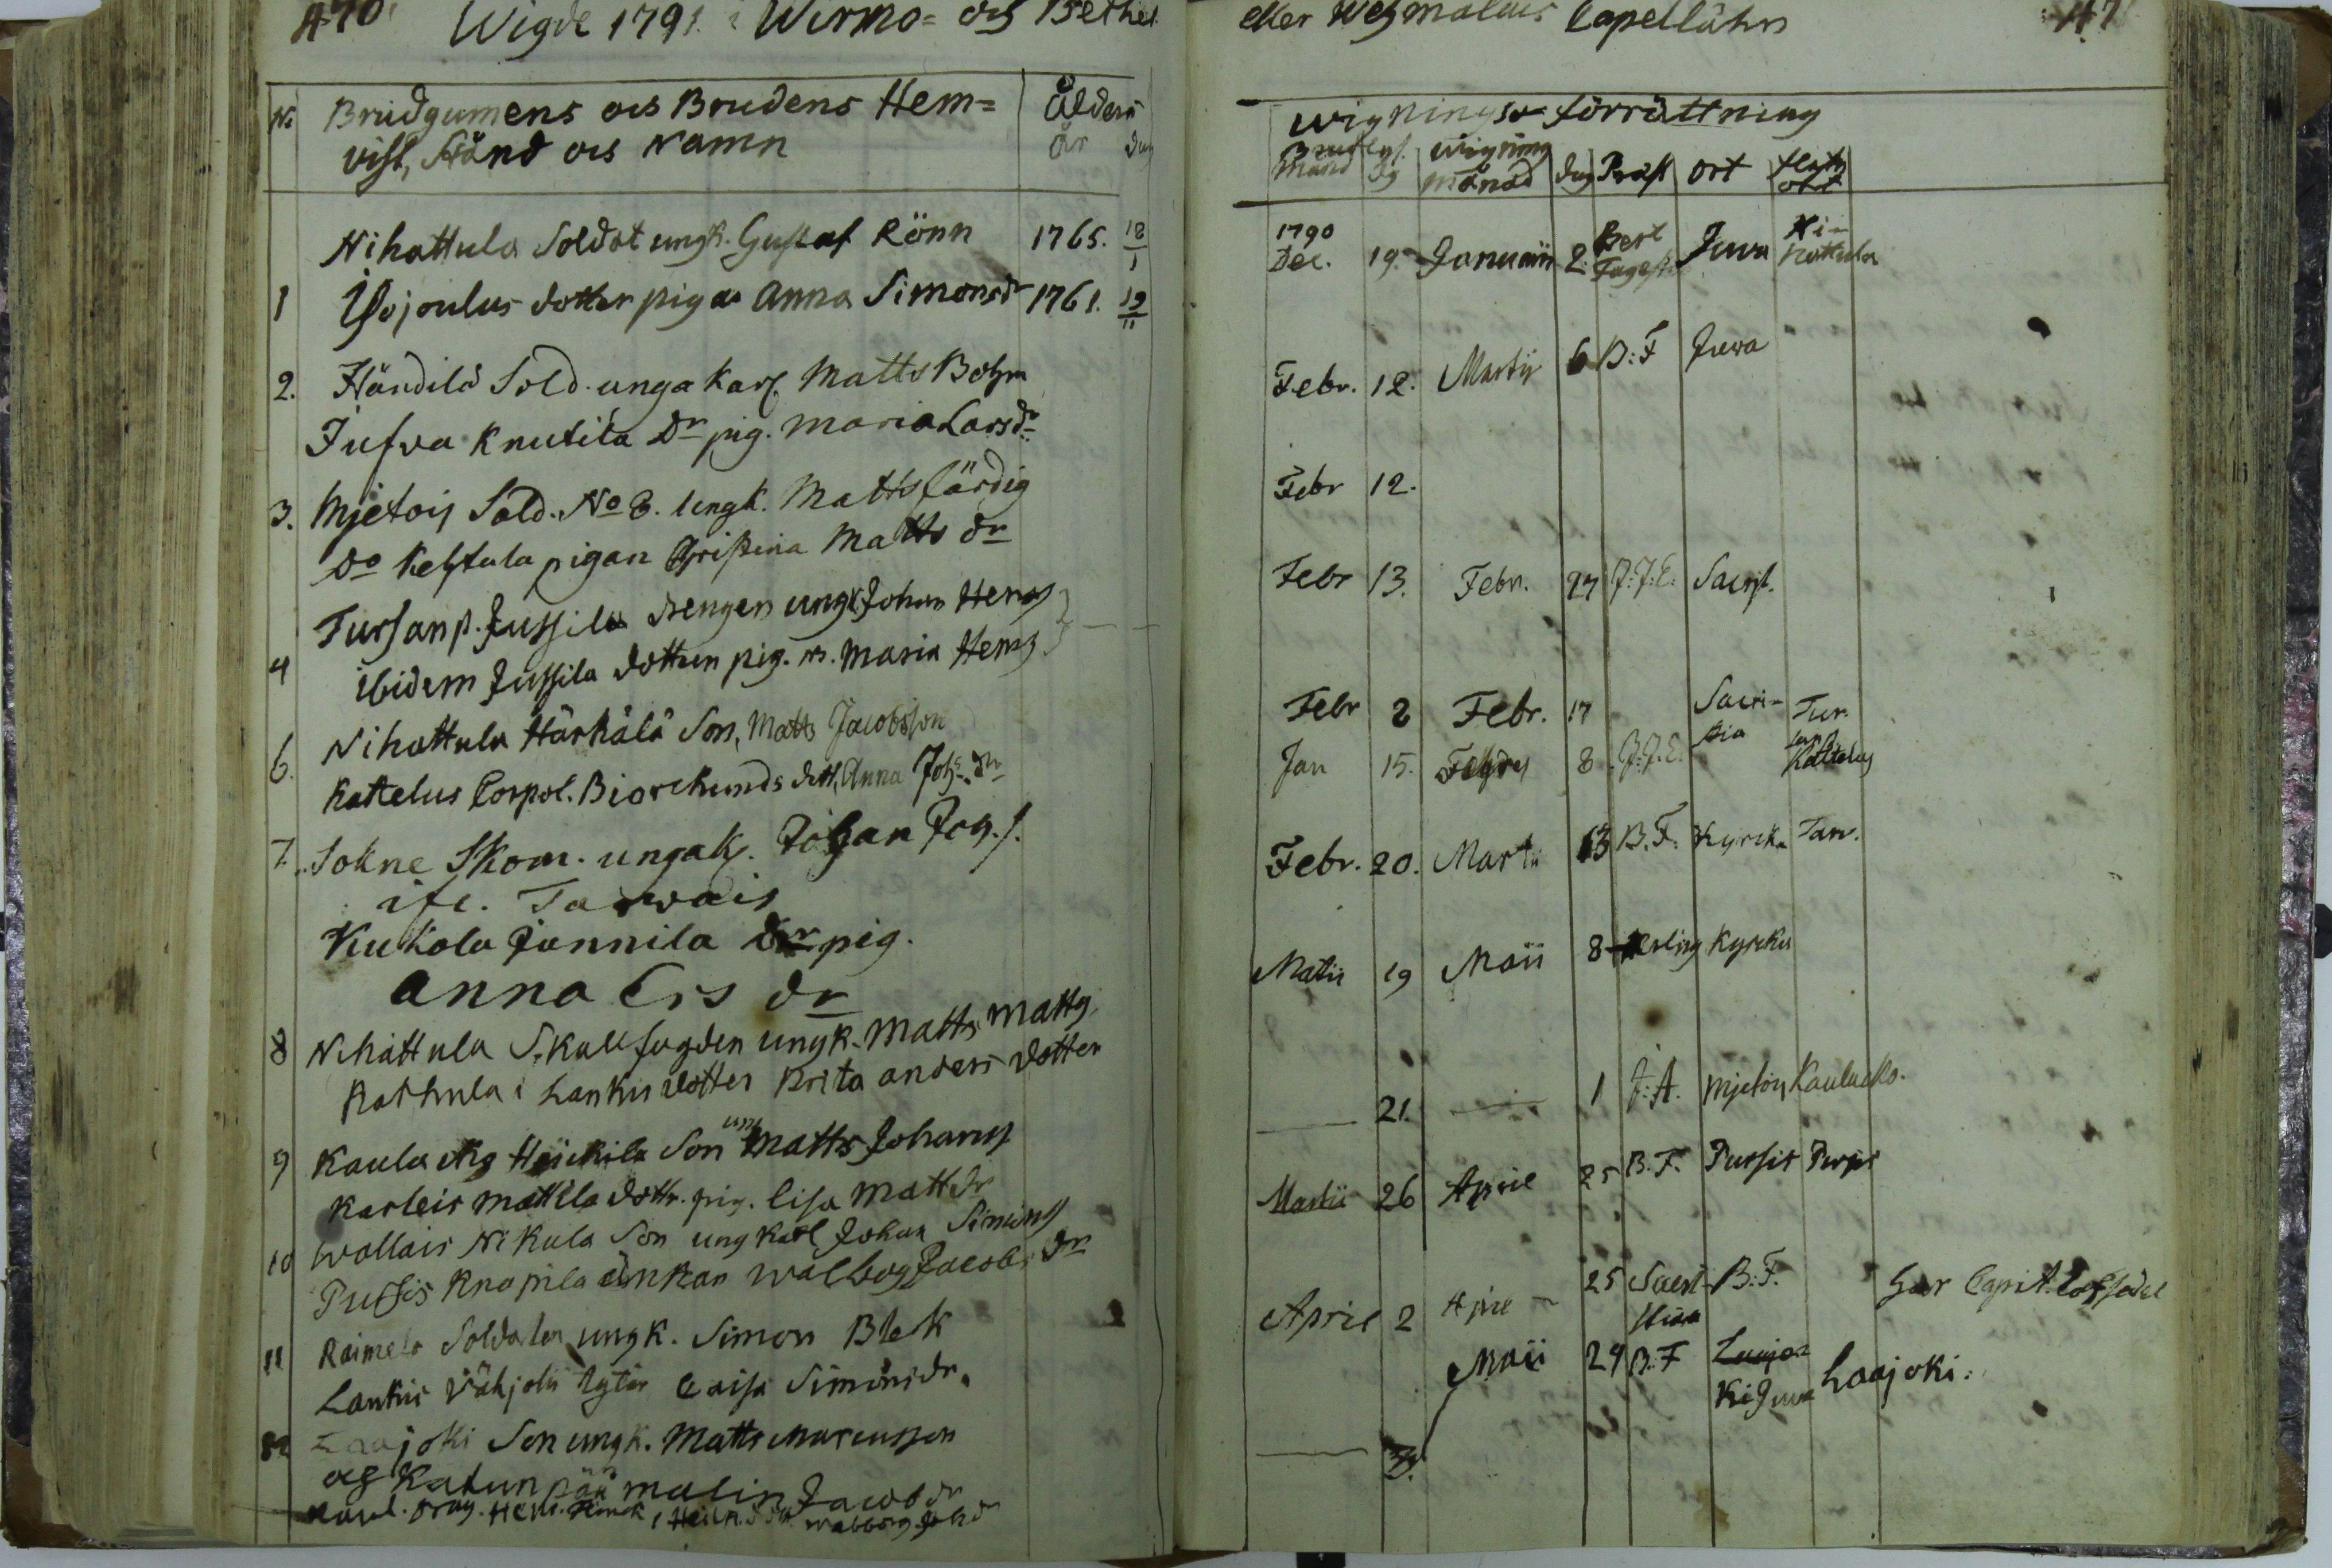 470 Wigde 1791 i Wirmo= och Bethel
No Brudgumens och Brudens Hem= Ålder
vist, Stånd och Namn år dag
Nihattula Soldat ungk. Gustaf Rönn 1765. 18/1
1 Isojoulus dotter pigan Anna Simonsdr 1761. 19/11
2. Händilä Sold. unga Karl. Matts Bohm
Jufva Knutila Dr pig. Maria Larsdr
3. Mjetois Sold. No 8. ungk. Matts färdig
Do Kehtula pigan Christina Matts dr
Tursanp. Jussila drengen ungk Johan Henrs
4 ibidem Jussila dottren pig. Maria Henrs
6. Nihattula Härkälä Son, Matts Jacobsson
Kattelus Corpol. Biorcklunds dott, Anna Johs dr
7. Sokne Skom. ungak. Johan Joh.s.
ifr. Tarvais
Kukola Jannila dr pig.
Anna Ers dr
8 Nihattula Skallfogden ungk. Matts Matts.
Kathula i Lankis dotter Brita anders dotter
9 Kaulacks Heickila Son ung Matts Johanss
Karleis Mattila dottr. pig. Lisa Mattsdr
10 Wallais Nikula Son ungkarl Johan Simons
Pussis Knapila änkan Walborg Jacobs dr
11 Raimela Soldaten ungk. Simon Blek
Lankis Vähjoki Caisa Simonsdr.
12 Laajoki Son ungk. Matts Marcusson
och Katunpää Malin Jacobdr
eller Wehmalais Capellähn 47
Wignings förrättning
Brudlys. Månd dg Wigning Månad dag Präst Ort
1790
Dec. 19. Januarii 2. Bert Fagerst Juva Nihattula
Febr. 12. Martii 6 B: F Juva
Febr 12.
Febr 13. Febr. 27 J: J: E. Sacrist.
Febr 2 Febr. 17 Sacristia Tursanp
Jan 15. 8 J: J. E. Kattelus
Febr. 20. Martii 13 B. F. Kyrcka Tarv.
Martii 19 Maii 8 Kyrcka
21. 1 J: A. Mjetois Kaulacks.
Martii 26 April 25 B. F. Pussis Pussis
April 2 April 25 Sacristian B. F.
Maii 29 B. F Laajoki Juva Laajoki.